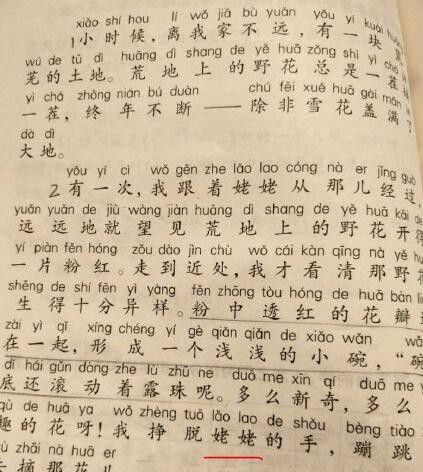 xiǎo shí hou lí wǒ jiā bù yuǎn yǒu yí kuài
1小时候，离我家不远，有一块荒
wú de tǔ dì huāng dì shang de yě huā zǒng shì yì chá
芜的土地。荒地上的野花总是一茬
yì chá zhōng nián bú duàn chú fēi xuě huā gài mǎn
一茬，终年不断——除非雪花盖满了
dà dì
大地。
yǒu yí cì wǒ gēn zhe lǎo lao cóng nà er jīng guò
2有一次，我跟着姥姥从那儿经过，
yuǎn yuǎn de jiù wàng jiàn huāng dì shang de yě huā kāi de
远远地就望见荒地上的野花开得
yí piàn fěn hóng zǒu dào jìn chù wǒ cái kàn qīng nà yě
一片粉红。走到近处，我才看清那野花
shēng de shí fēn yì yàng fěn zhōng tòu hóng de huā bàn
生得十分异样。粉中透红的花瓣
zài yì qǐ xíng chéng yí gè qiǎn qiǎn de xiǎo wǎn wǎn
在一起，形成一个浅浅的小碗，“碗
dǐ hái gǔn dòng zhe lù zhū ne duō me xīn qí duō me
底还滚动着露珠呢。多么新奇，多么
qù de huā ya wǒ zhèng tuō lǎo lao de shǒu bèng tiào
趣的花呀！我挣脱姥姥的手，蹦跳
qù zhāi nà huā er
去摘那花儿